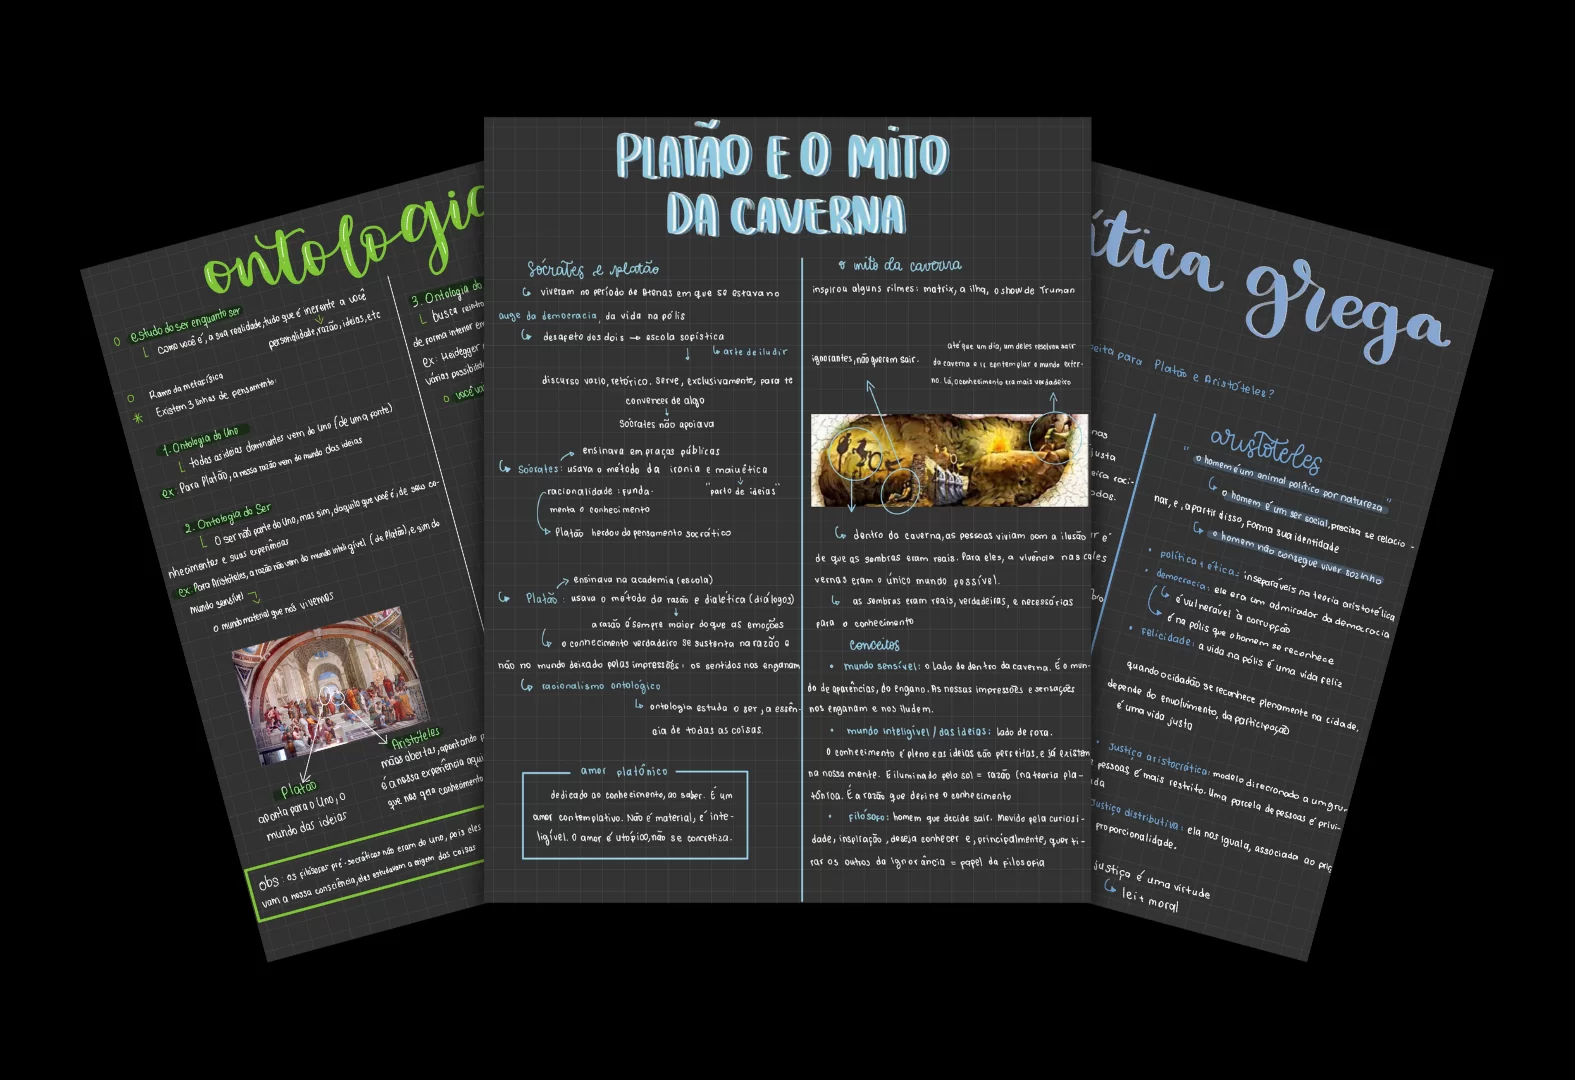 ontologi
o estudo do ser enquanto ser
como você é, a sua realidade, tudo que é inerente a você
personalidade, razão, ideias, etc
o Ramo da metafísica
* Existem 3 linhas de pensamento:
1. Ontologia do Uno
todas as ideias dominantes vem do Uno (de uma fonte)
ex: Para Platão, a nossa razão vem do mundo das ideias
2. Ontologia do Ser
O ser não parte do Uno, mas sim, daquilo que você é, de seu co-
nhecimentos e suas experiências
ex: Para Aristóteles, a razão não vem do mundo inteligível (de Platão), e sim do
mundo sensível
o mundo material que nós vivemos
Platão
aponta para o Uno, o
mundo das ideias
Aristóteles
mãos abertas, apontando p
é a nossa experiência aqui
que nos gera conhecimento
obs: os filósofos pré-socráticos não eram do Uno, pois eles
vam a nossa consciência, eles estudavam a origem das coisas
3. Ontologia do
busca
de forma interior
ex: Heidegger
várias possibilida
o você
PLATÃO E O MITO
DA CAVERNA
Sócrates e platão
viveram no período de Atenas em que se estava no
auge da democracia, da vida na pólis
desafeto dos dois → escola sofística
arte de iludir
discurso vazio, retórico. Serve, exclusivamente, para te
convencer de algo
Sócrates não apoiava
ensinava em praças públicas
Sócrates: usava o método da ironia e maiuética
racionalidade: funda-
"parto de ideias"
menta o conhecimento
Platão herdou do pensamento socrático
ensinava na academia (escola)
Platão: usava o método da razão e dialética (diálogos)
a razão é sempre maior do que as emoções
o conhecimento verdadeiro se sustenta na razão e
não no mundo deixado pelas impressões: os sentidos nos enganam
racionalismo ontológico
ontologia estuda o ser, a essên-
cia de todas as coisas.
amor platônico
dedicado ao conhecimento, ao saber. É um
amor contemplativo. Não é material, é inte-
ligível. O amor é utópico, não se concretiza.
o mito da caverna
inspirou alguns filmes: matrix, a ilha, o show de Truman
até que um dia, um deles resolveu sair
ignorantes, não querem sair.
da caverna e ir contemplar o mundo exter-
no. Lá, o conhecimento era mais verdadeiro
dentro da caverna, as pessoas viviam com a ilusão
de que as sombras eram reais. Para eles, a vivência nas ca
vernas eram o único mundo possível.
as sombras eram reais, verdadeiras, e necessárias
para o conhecimento
conceitos
• mundo sensível: o lado de dentro da caverna. É o mun-
do de aparências, do engano. As nossas impressões e sensações
nos enganam e nos iludem.
• mundo inteligível / das ideias: lado de fora.
o conhecimento é pleno e as ideias são perfeitas, e já existem
na nossa mente. É iluminado pelo sol = razão (na teoria pla-
tônica. É a razão que define o conhecimento
• Filósofo: homem que decide sair. Movido pela curiosi-
dade, inspiração, deseja conhecer e, principalmente, quer ti-
rar os outros da ignorância = papel da filosofia
ítica grega
eita para Platão e Aristóteles?
nas
justa
eira raci-
ados.
aristóteles
"o homem é um animal político por natureza"
o homem é um ser social, precisa se relacio-
nar, e, a partir disso, forma sua identidade
o homem não consegue viver sozinho
• política + ética: inseparáveis na teoria aristotélica
• democracia: ele era um admirador da democracia
é vulnerável à corrupção
é na pólis que o homem se reconhece
• felicidade: a vida na pólis é uma vida feliz
quando o cidadão se reconhece plenamente na cidade,
depende do envolvimento, da participação
é uma vida justa
• justiça aristocrática: modelo direcionado a um gru-
pessoas, é mais restrito. Uma parcela de pessoas é privi-
da
justiça distributiva: ela nos iguala, associada ao
proporcionalidade.
justiça é uma virtude
lei + moral